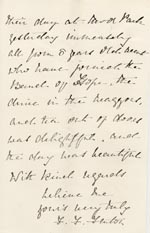 their day at
yesterday immensely
all from 8 years old, came
who have joined the
Band of Hope. the
drive in the waggons,
and tea out of doors
was delightful, and
the day was beautiful
With kind regards
believe me
yours very truly